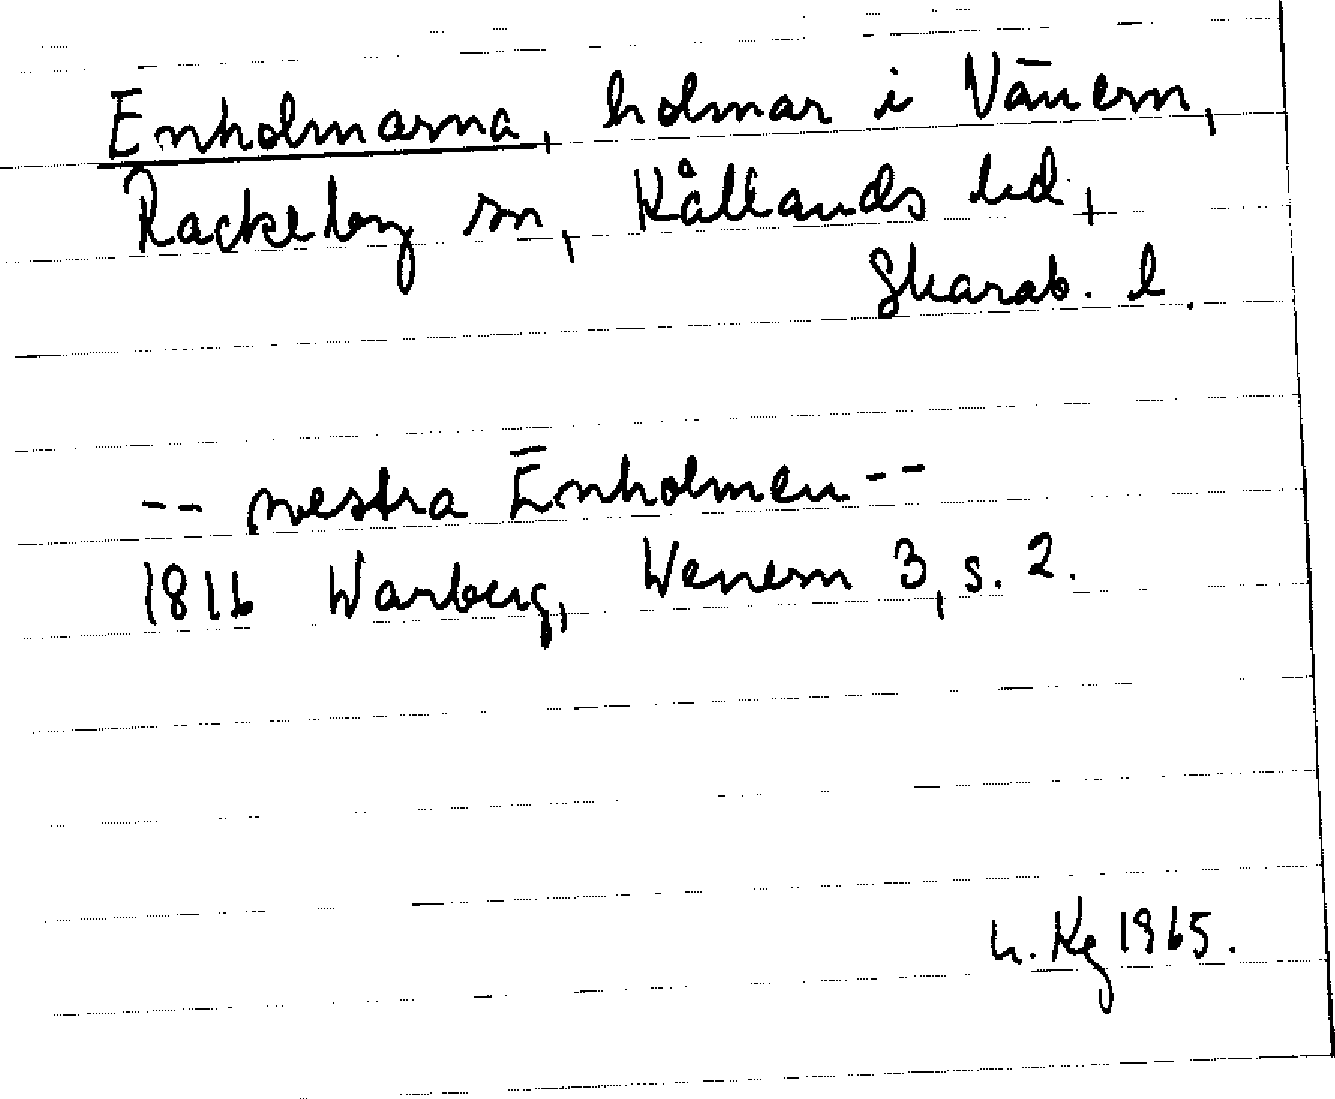 Enholmarna, holmar i Vänern,
Rackeby sn, Kållands hd,
Skarab. l.
-- westra Enholmen --
1816 Warberg, Wenern 3, s. 2.
h. Kg 1965.